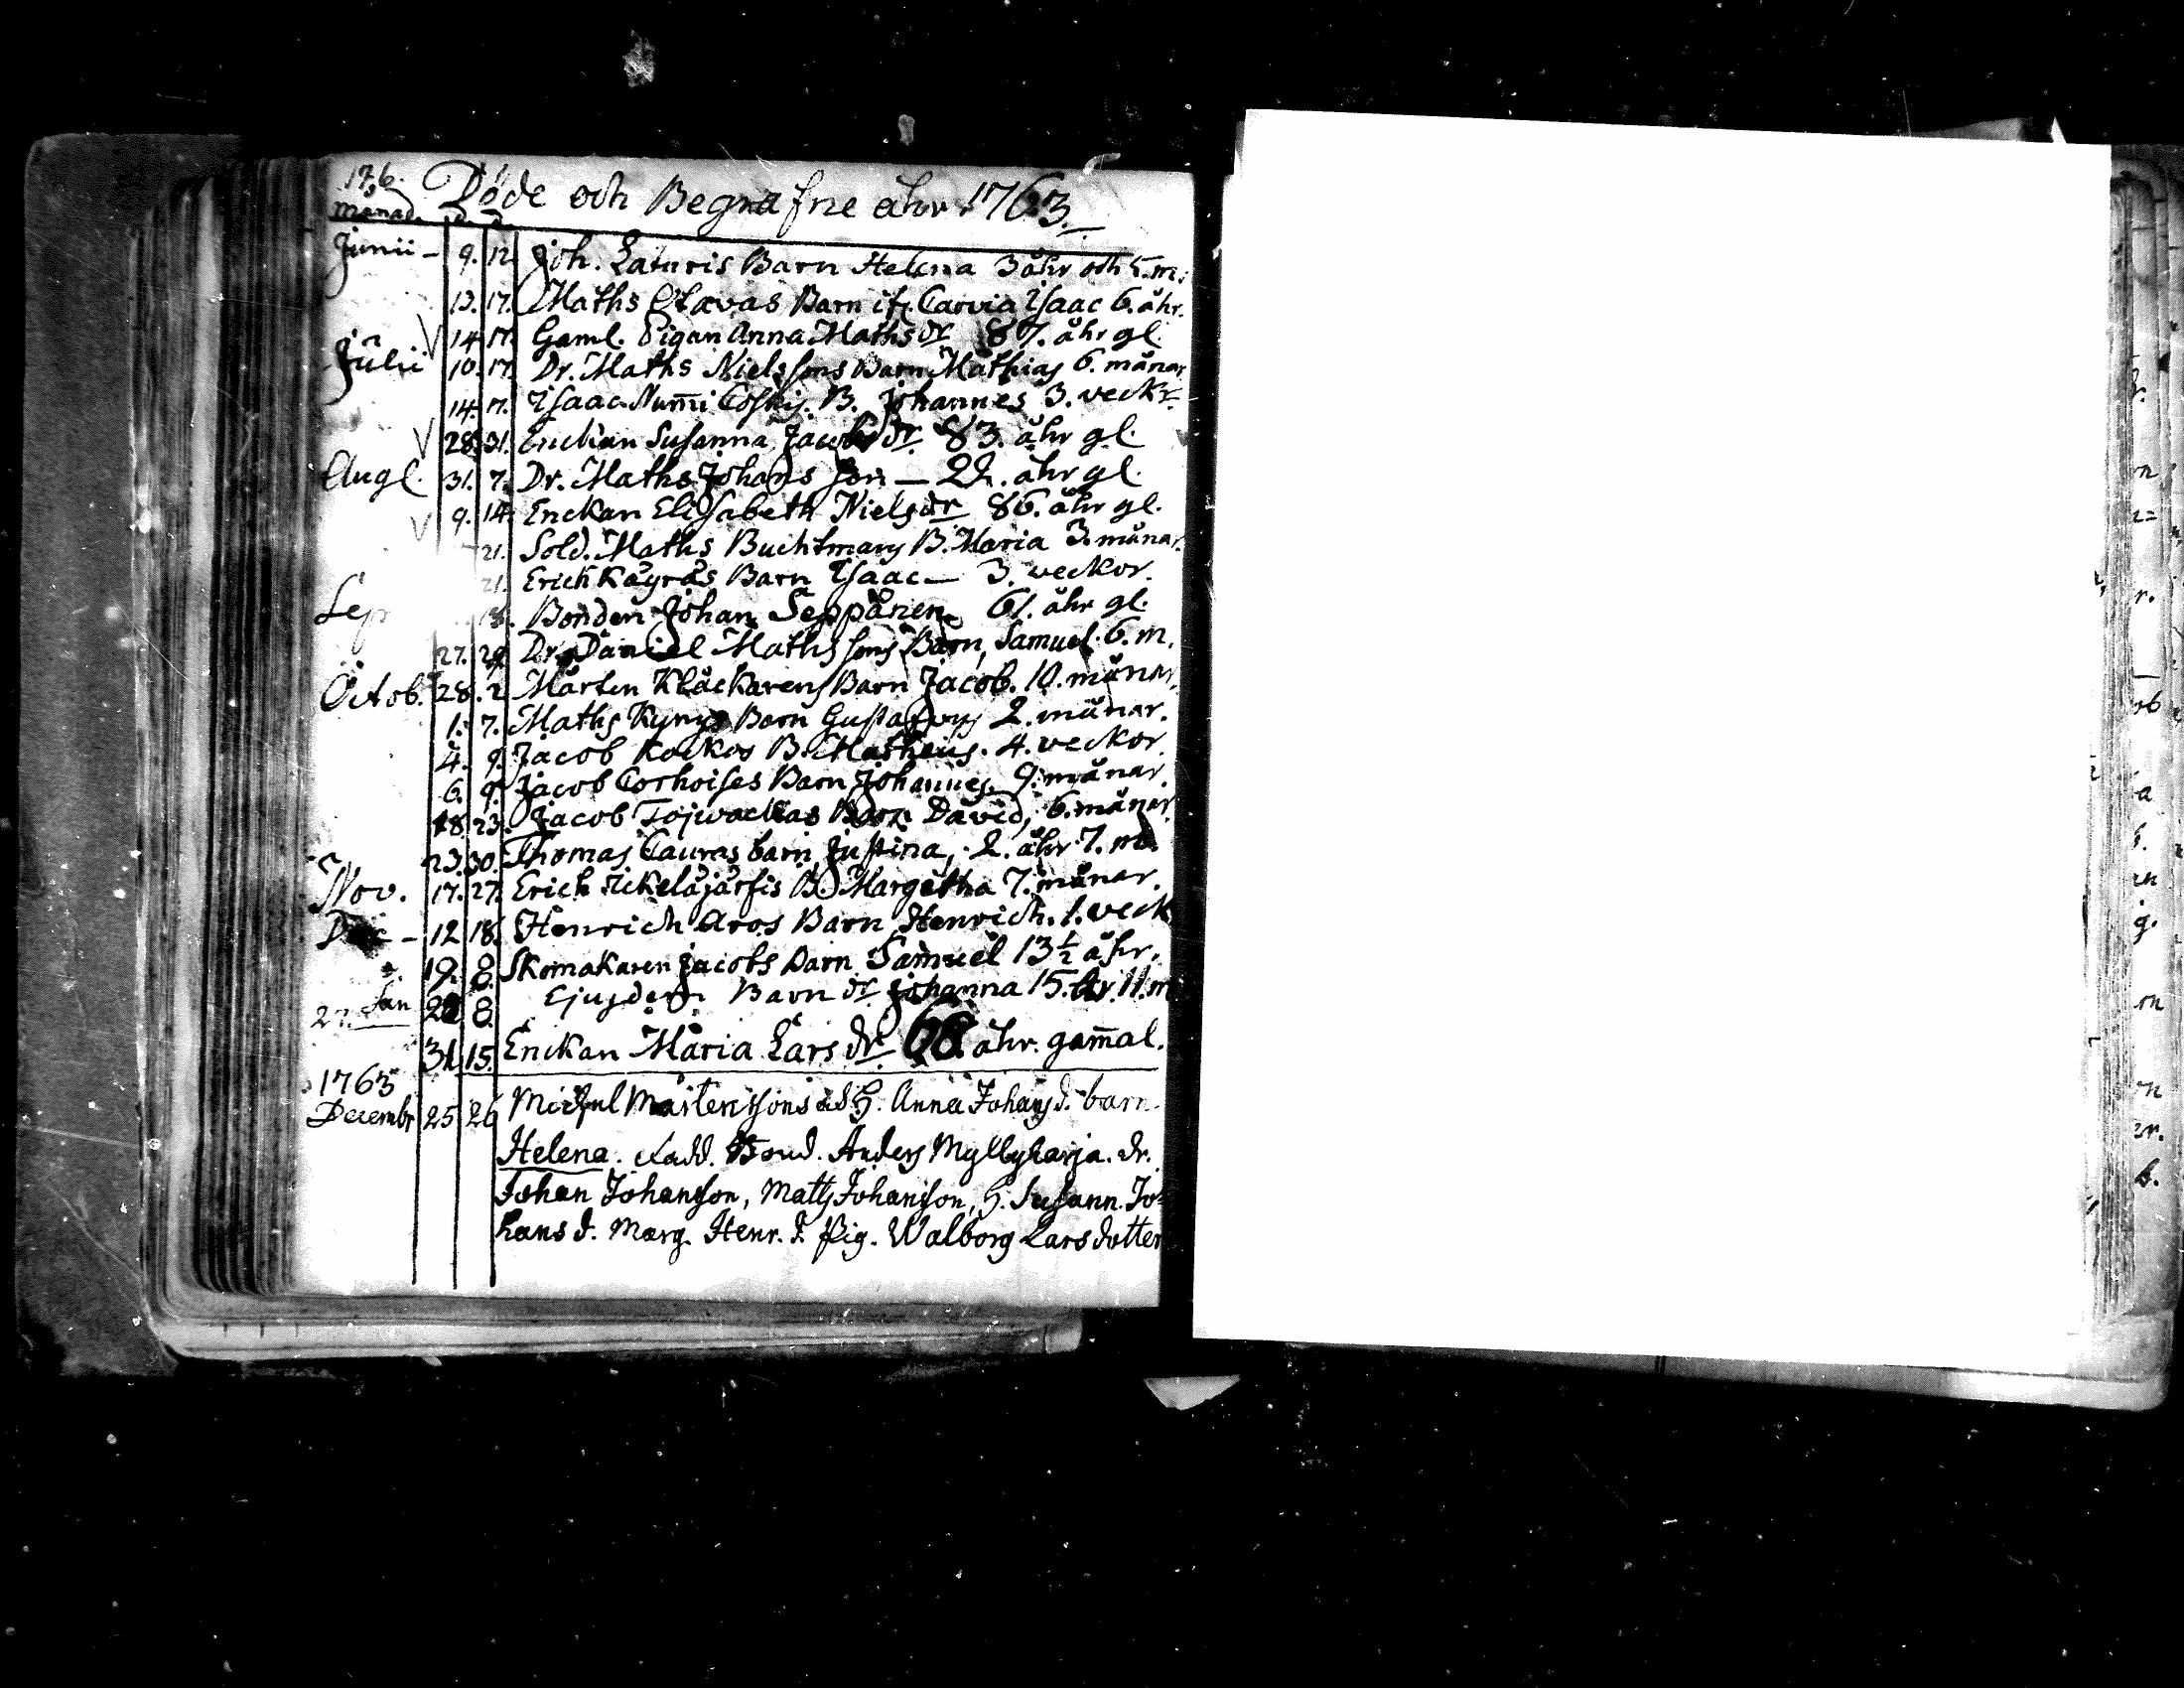 176. Döde och Begrafne åhr 1763.
månad. d. d.
Junii - 9. 12. Joh. Laturis Barn Helena 3 åhr och 5. m.
13. 17. Maths Barn Carvia Isaac 6. åhr.
14. 17. Gaml. Pigan Anna Maths dr 87. åhr gl.
Julii 10. 17. Dr. Maths Nielssons Barn Mathias 6. månar
14. 17. Isaac Num̄i B. Johannes 3. veckr
28. 31. Enckian Susanna Jacobs dr 83. åhr gl.
Augl. 31. 7. Dr. Maths Johans son — 22. åhr gl.
9. 14. Enckan Elisabeth Niels dr 86. åhr gl.
21. Sold. Maths Buchtmans B. Maria 3. månar.
21. Erich Käyräs Barn Isaac — 3. veckor.
Sep 18. Bonden Johan Seppänen 61. åhr gl.
27. 29. Dr. Daniel Maths sons Barn, Samuel. 6. m.
Octob. 28. 2. Mårten Klåckarens Barn Jacob. 10. månar.
1. 7. Maths Kynys Barn Gustavus 2. månar.
4. 9. Jacob Kockos B. Matheus. 4. veckor.
6. 9. Jacob Corhoises Barn Johannes. 9. månar.
18. 23. Jacob Tojwackas Barn David, 6. månar.
23. 30. Thomas Cauras barn Justina, 2. åhr 7. må.
Nov. 17. 27. Erich B. Margetha 7. månar.
Dec - 12 18. Henrich Aros Barn Henrich. 1. veck
19. 8. Skomakaren Jacobs Barn Samuel 13 1/2 åhr.
27. Jan 28 8. Ejusdem Barn dr Johanna 15. år 11. m
31. 15. Enckan Maria Lars dr 68. åhr gam̄al.
1763
Decembr 25 26 Michel Mårtenssons H. Anna Johans d. barn
Helena. Fadd. Bond. Anders Myllyharja. dr.
Johan Johansson, Matts Johansson, H. Susann. Jo-
hans d. Marg. Henr. d. Pig. Walborg Larsdotter